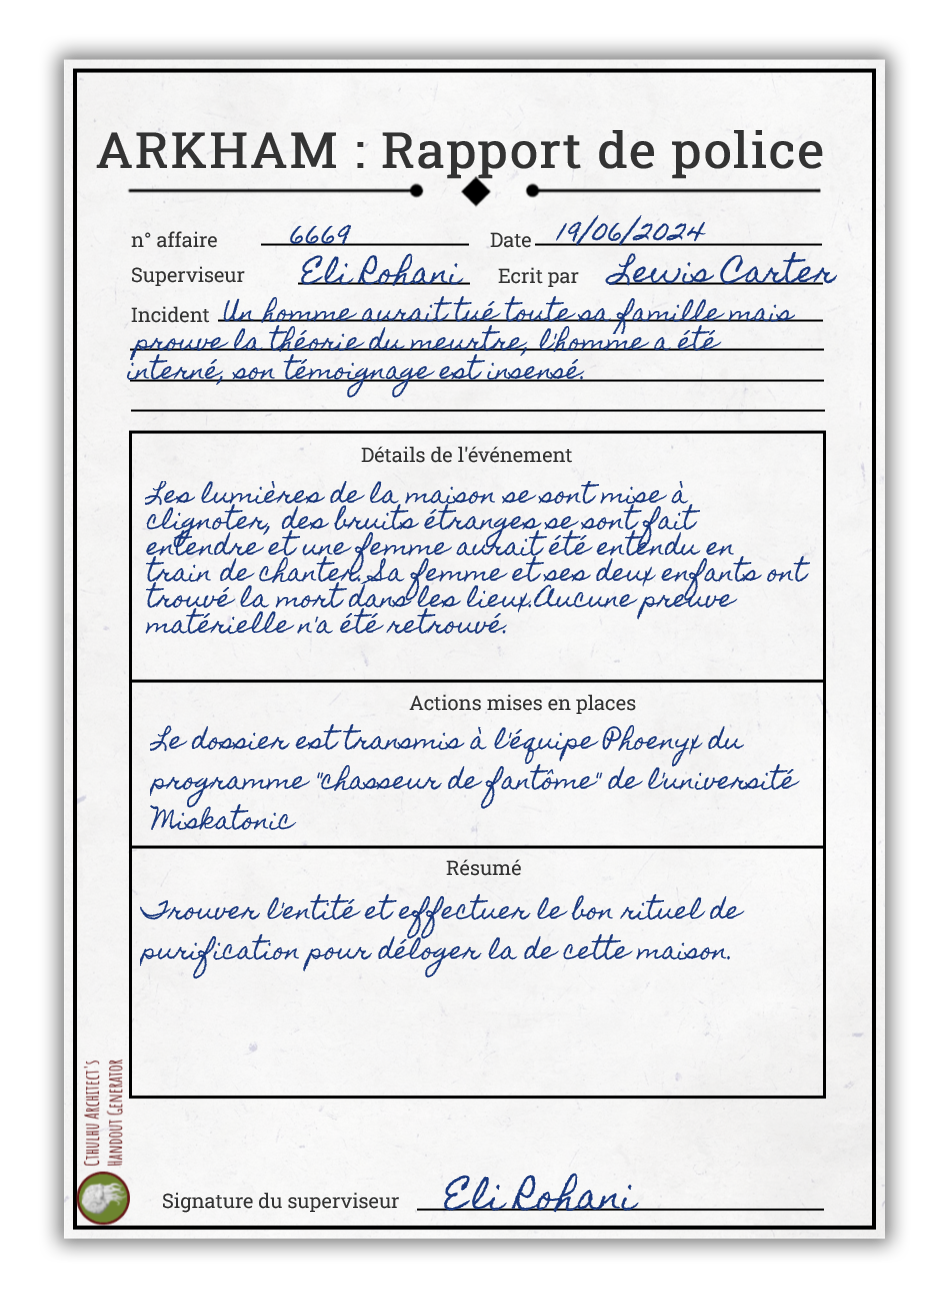 ARKHAM : Rapport de police
n° affaire 6669 Date 19/06/2024
Superviseur Eli Rohani Ecrit par Lewis Carter
Incident Un homme aurait tué toute sa famille mais
prouve la théorie du meurtre, l'homme a été
interné, son témoignage est insensé.
Détails de l'événement
Les lumières de la maison se sont mise à
clignoter, des bruits étranges se sont fait
entendre et une femme aurait été entendu en
train de chanter. Sa femme et ses deux enfants ont
trouvé la mort dans les lieux.Aucune preuve
matérielle n'a été retrouvé.
Actions mises en places
Le dossier est transmis à l'équipe Phoenyx du
programme "chasseur de fantôme" de l'université
Miskatonic
Résumé
Trouver l'entité et effectuer le bon rituel de
purification pour déloger la de cette maison.
Cthulhu Architect's
Handout Generator
Signature du superviseur Eli Rohani